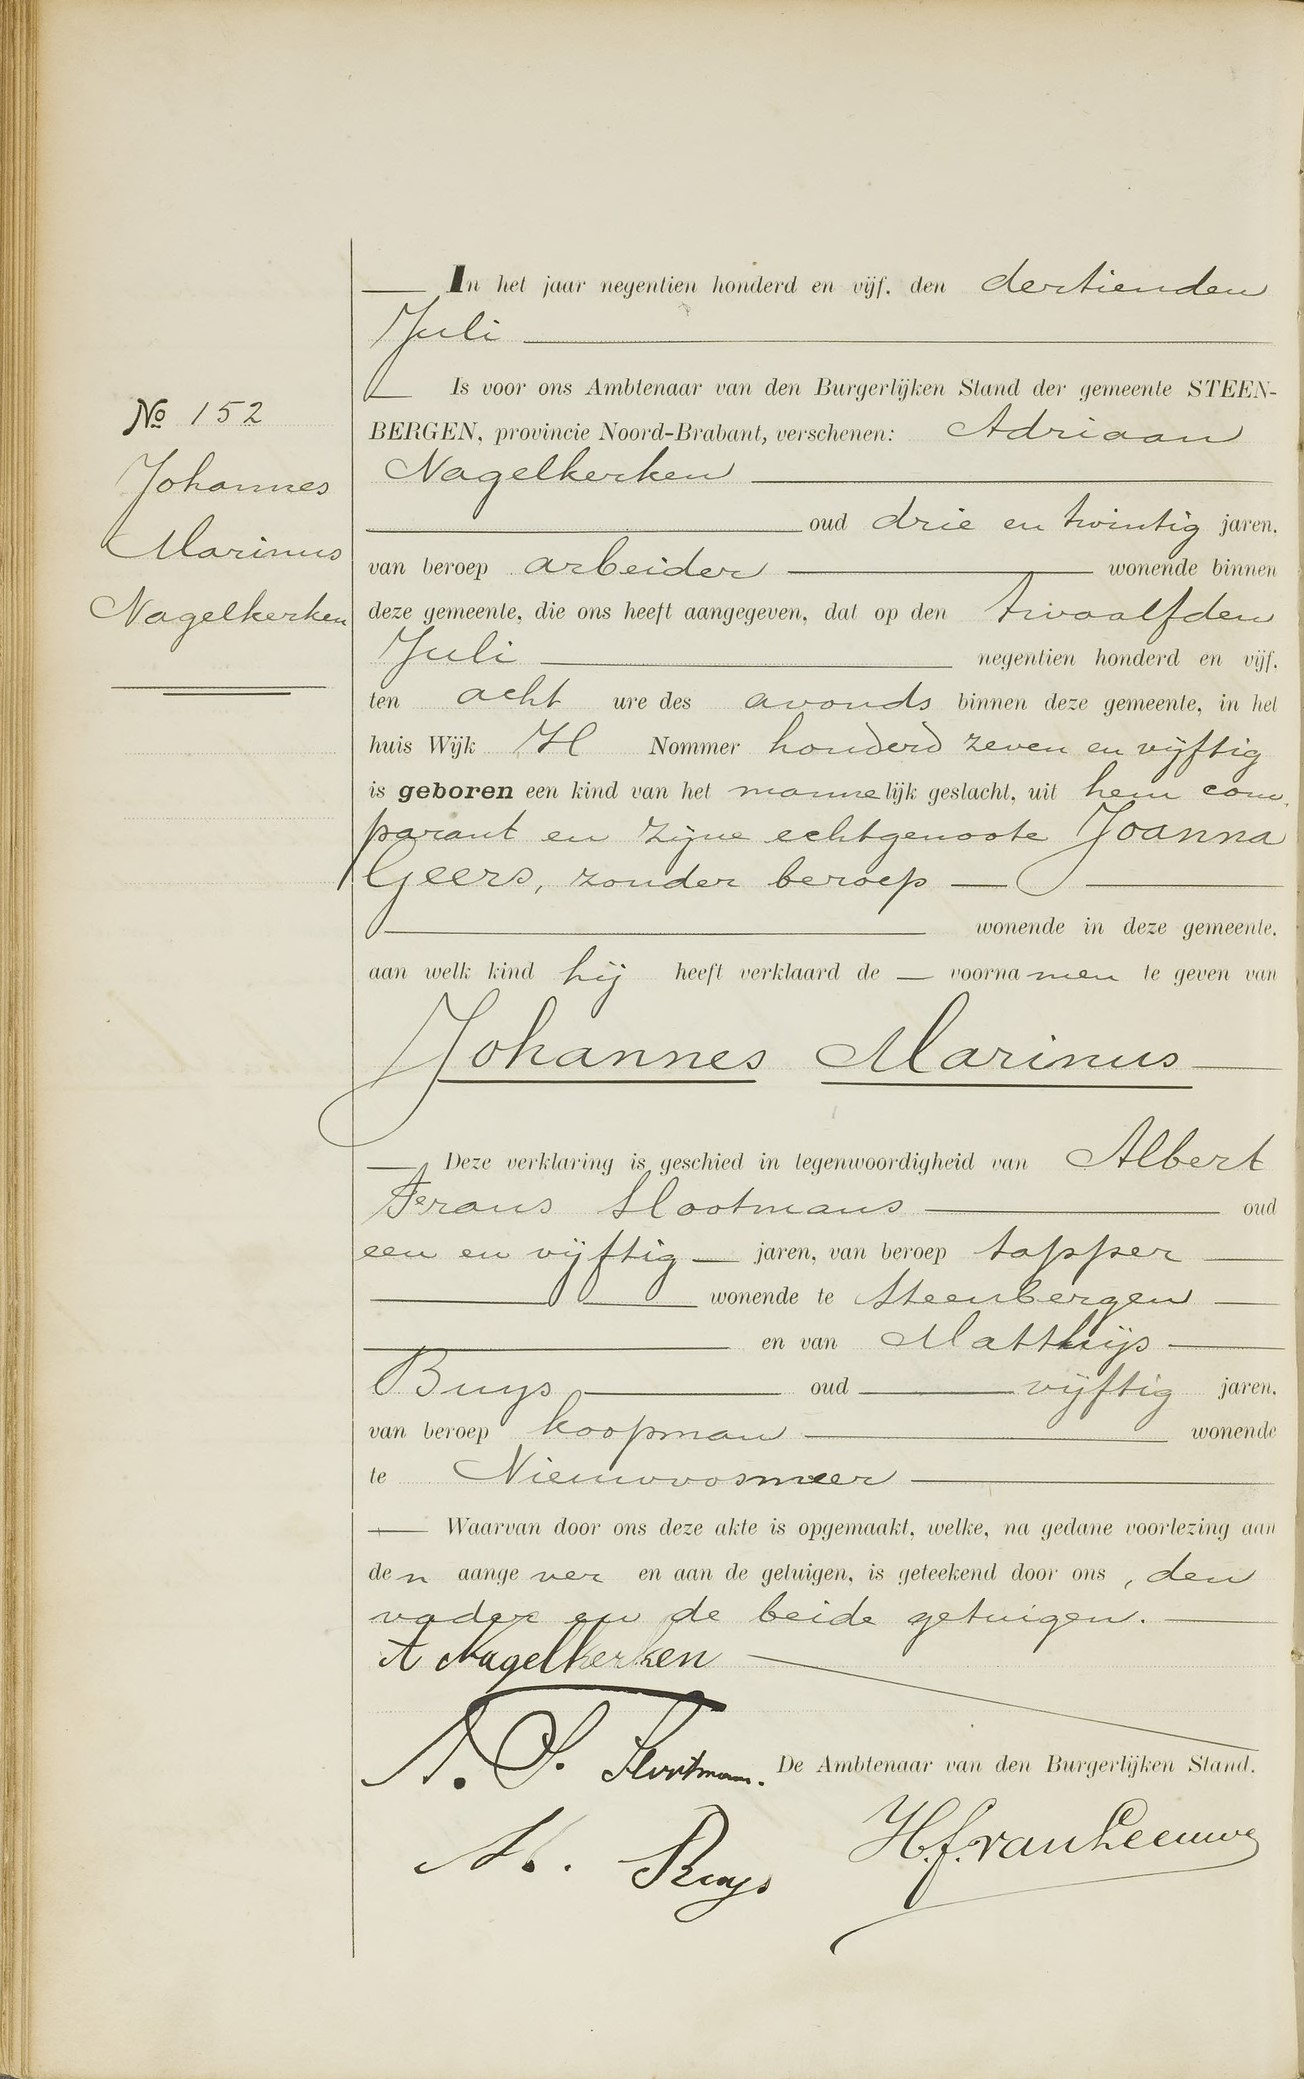 No 152
Johannes
Marinus
Nagelkerken
In het jaar negentien honderd en vijf, den dertienden
Juli
Is voor ons Ambtenaar van den Burgerlijken Stand der gemeente STEEN-
BERGEN, provincie Noord-Brabant, verschenen: Adriaan
Nagelkerken
oud drie en twintig jaren,
van beroep arbeider wonende binnen
deze gemeente, die ons heeft aangegeven, dat op den twaalfden
Juli negentien honderd en vijf,
ten acht ure des avonds binnen deze gemeente, in het
huis Wijk H Nommer honderd zeven en vijftig
is geboren een kind van het mannelijk geslacht, uit hem com-
parant en zijne echtgenoote Joanna
Geers, zonder beroep
wonende in deze gemeente,
aan welk kind hij heeft verklaard de voornamen te geven van
Johannes Marinus
Deze verklaring is geschied in tegenwoordigheid van Albert
Frans Slootmans oud
een en vijftig jaren, van beroep tapper
wonende te Steenbergen
en van Matthijs
Buys oud vijftig jaren,
van beroep koopman wonende
te Nieuwvosmeer
Waarvan door ons deze akte is opgemaakt, welke, na gedane voorlezing aan
den aangever en aan de getuigen, is geteekend door ons, den
vader en de beide getuigen.
A Nagelkerken
Slootmans.
De Ambtenaar van den Burgerlijken Stand.
H.J. van Leeuwe
M. Buys